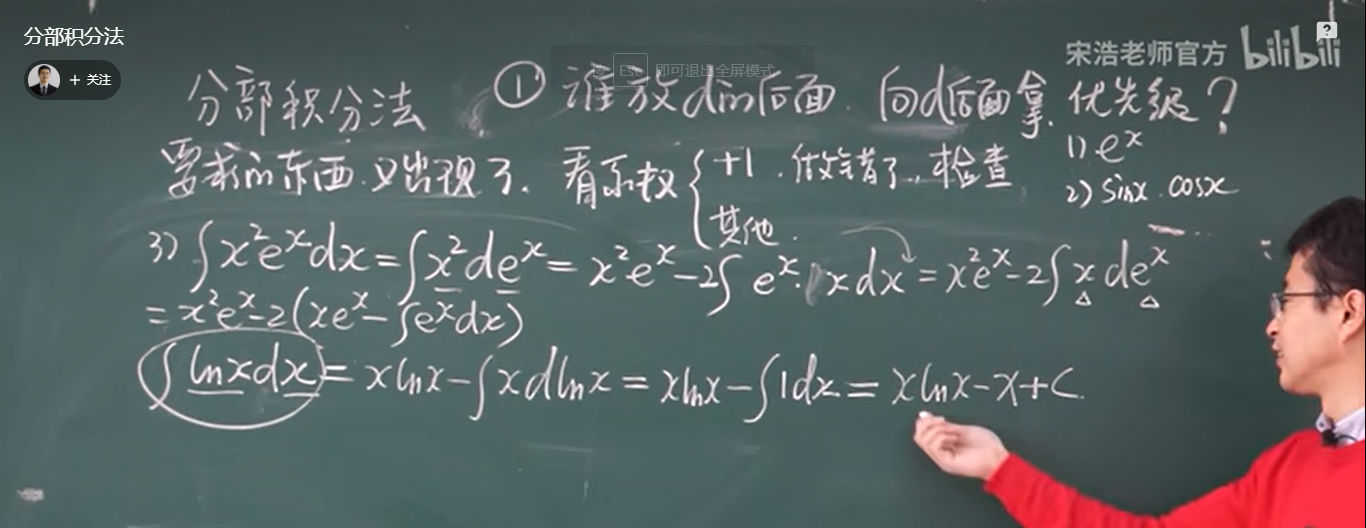 分部积分法
+ 关注
宋浩老师官方 bilibili
Esc 即可退出全屏模式
分部积分法 ① 谁放d的后面. 向d后面拿. 优先级?
1) eˣ
2) sinx. cosx
要求的东西又出现了. 看系数 { +1. 做错了. 检查
其他.
3) ∫x²eˣdx = ∫x²deˣ = x²eˣ - 2∫eˣ·xdx = x²eˣ - 2∫xdeˣ
= x²eˣ - 2(xeˣ - ∫eˣdx)
∫lnxdx = xlnx - ∫xdlnx = xlnx - ∫1dx = xlnx - x + C.